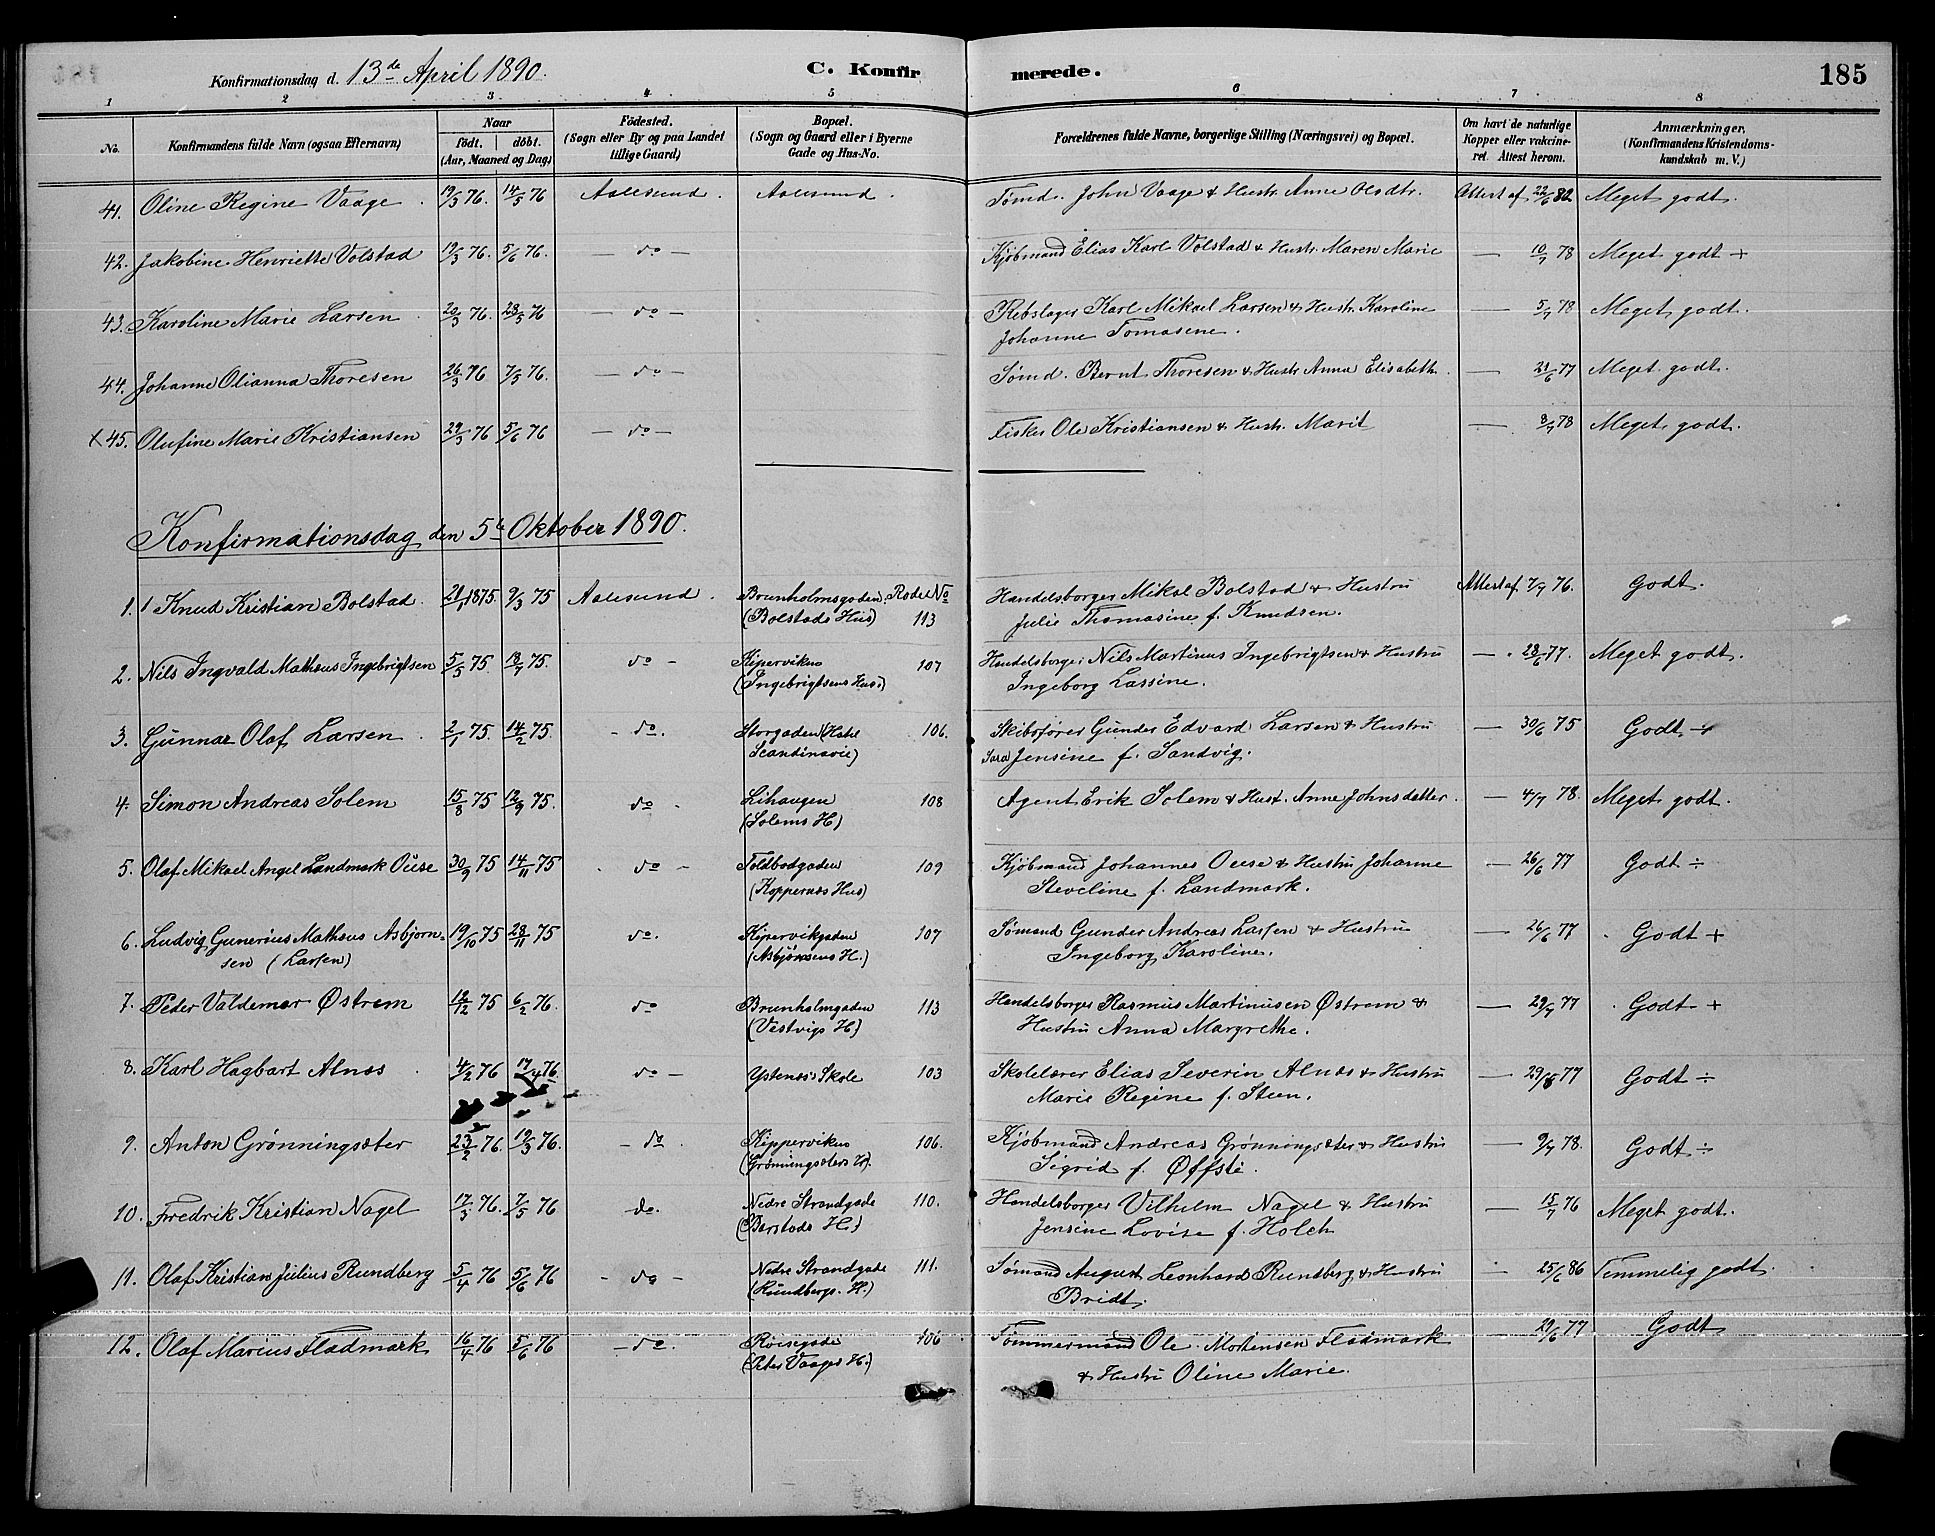 Konfirmationsdag d. 13de April 1890. C. Konfirmerede. 185
1 2 3 4 5 6 7 8
No. Konfirmandens fulde Navn (ogsaa Efternavn) Naar födt. döbt. (Aar, Maaned og Dag) Födested. (Sogn eller By og paa Landet tillige Gaard) Bopæl. (Sogn og Gaard eller i Byerne Gade og Hus-No. Forældrenes fulde Navne, borgerlige Stilling (Næringsvei) og Bopæl. Om havt de naturlige Kopper eller vakcineret. Attest herom. Anmærkninger. (Konfirmandens Kristendomskundskab m. V.)
41. Oline Regine Vaage. 19/3 76. 14/5 76 Aalesund. Aalesund. Tømd. John Vaage & Hustr. Anne Olsdtr. Attest af 22/6 82 Meget godt.
42. Jakobine Henriette Volstad 19/3 76. 5/6 76. — do — Kjøbmand Elias Karl Volstad & Hustr. Maren Marie — 10/7 78 Meget godt +
43. Karoline Marie Larsen. 20/3 76. 28/5 76 — do — Rebslager Karl Mikael Larsen & Hustr. Karoline — 5/7 78 Meget godt.
Johanne Tomasene.
44. Johanne Olianna Thoresen 26/3 76 7/5 76. — do — Sømd. Bernt Thoresen & Hustr Anna Elisabeth. — 21/6 77 Meget godt.
x 45. Olufine Marie Kristiansen 29/3 76 5/6 76 — do — Fisker Ole Kristiansen & Hustr. Marit — 8/7 78 Meget godt.
Konfirmationsdag den 5te Oktober 1890.
1. 1 Knud Kristian Bolstad. 21/1 1875. 9/3 75 Aalesund. Brunholmsgaden. Rode No Handelsborger Mikal Bolstad & Hustru Attest af 7/9 76. Godt.
(Bolstads Hus) 113 Julie Thomasine f. Knudsen.
2. Nils Ingvald Mathæus Ingebrigtsen 5/5 75. 18/7 75. do — Kiperviken 107 Handelsborger Nils Martinus Ingebrigtsen & Hustru — 28/6 77. Meget godt.
(Ingebrigtsens Hus.) Ingeborg Lassine.
3. Gunnar Olaf Larsen. 2/1 75. 14/2 75. - do. Storgaden (Hotel 106. Skibsfører Gunder Edvard Larsen & Hustru — 30/6 75 Godt ÷
Scandinavie) Sara Jensine f. Sandvig.
4. Simon Andreas Solem 15/8 75 12/9 75. do - Lihaugen 108 Agent Erik Solem & Hust. Anne Johnsdatter. — 4/7 78. Meget godt.
(Solems H)
5. Olaf Mikael Angel Landmark Ouse 30/9 75 14/11 75 do - Toldbodgaden 109 Kjøbmand Johannes Ouse & Hustru Johanne — 26/6 77 Godt ÷
(Koppernæs Hus) Steveline f. Landmark.
6. Ludvig Gunerius Mathæus Asbjørn- 19/10 75 28/11 75 do. Kipervikgaden 107 Sømand Gunder Andreas Larsen & Hustru — 26/6 77 Godt +
sen (Larsen) (Asbjørnsens H.) Ingeborg Karoline.
7. Peder Valdemar Østrem 18/12 75 6/2 76. do Brunholmgaden 113 Handelsborger Rasmus Martinusen Østrem & — 29/7 77 Godt +
(Vestvigs H) Hustru Anna Margrethe.
8. Karl Hagbart Alnæs 4/2 76 17/4 76. do — Ystenæs Skole 103 Skolelærer Elias Severin Alnæs & Hustru — 29/6 77 Godt ÷
Marie Regine f. Steen.
9. Anton Grønningsæter 23/2 76. 19/3 76. — do Kipperviken 106. Kjøbmand Andreas Grønningsæter & Hustru — 9/7 78. Godt ÷
(Grønningsæters H). Sigrid f. Øffsti.
10. Fredrik Kristian Nagel 17/3 76. 7/5 76 do. Nedre Strandgade 110. Handelsborger Vilhelm Nagel & Hustru — 15/7 76 Meget godt.
(Barstads H.) Jensine Lovise f. Holch
11. Olaf Kristian Julius Rundberg 5/4 76 5/6 76 - do - Nedre Strandgade 111. Sømand August Leonhard Rundberg & Hustru 25/6 86 Temmelig godt.
(Rundbergs. H.) Bridt.
12. Olaf Marius Fladmark 16/4 76 5/6 76 - do. Røisegade 106 Tømmermand Ole Mortensen Fladmark — 29/6 77 Godt
(Peter Vaages H.) & Hustru Oline Marie.